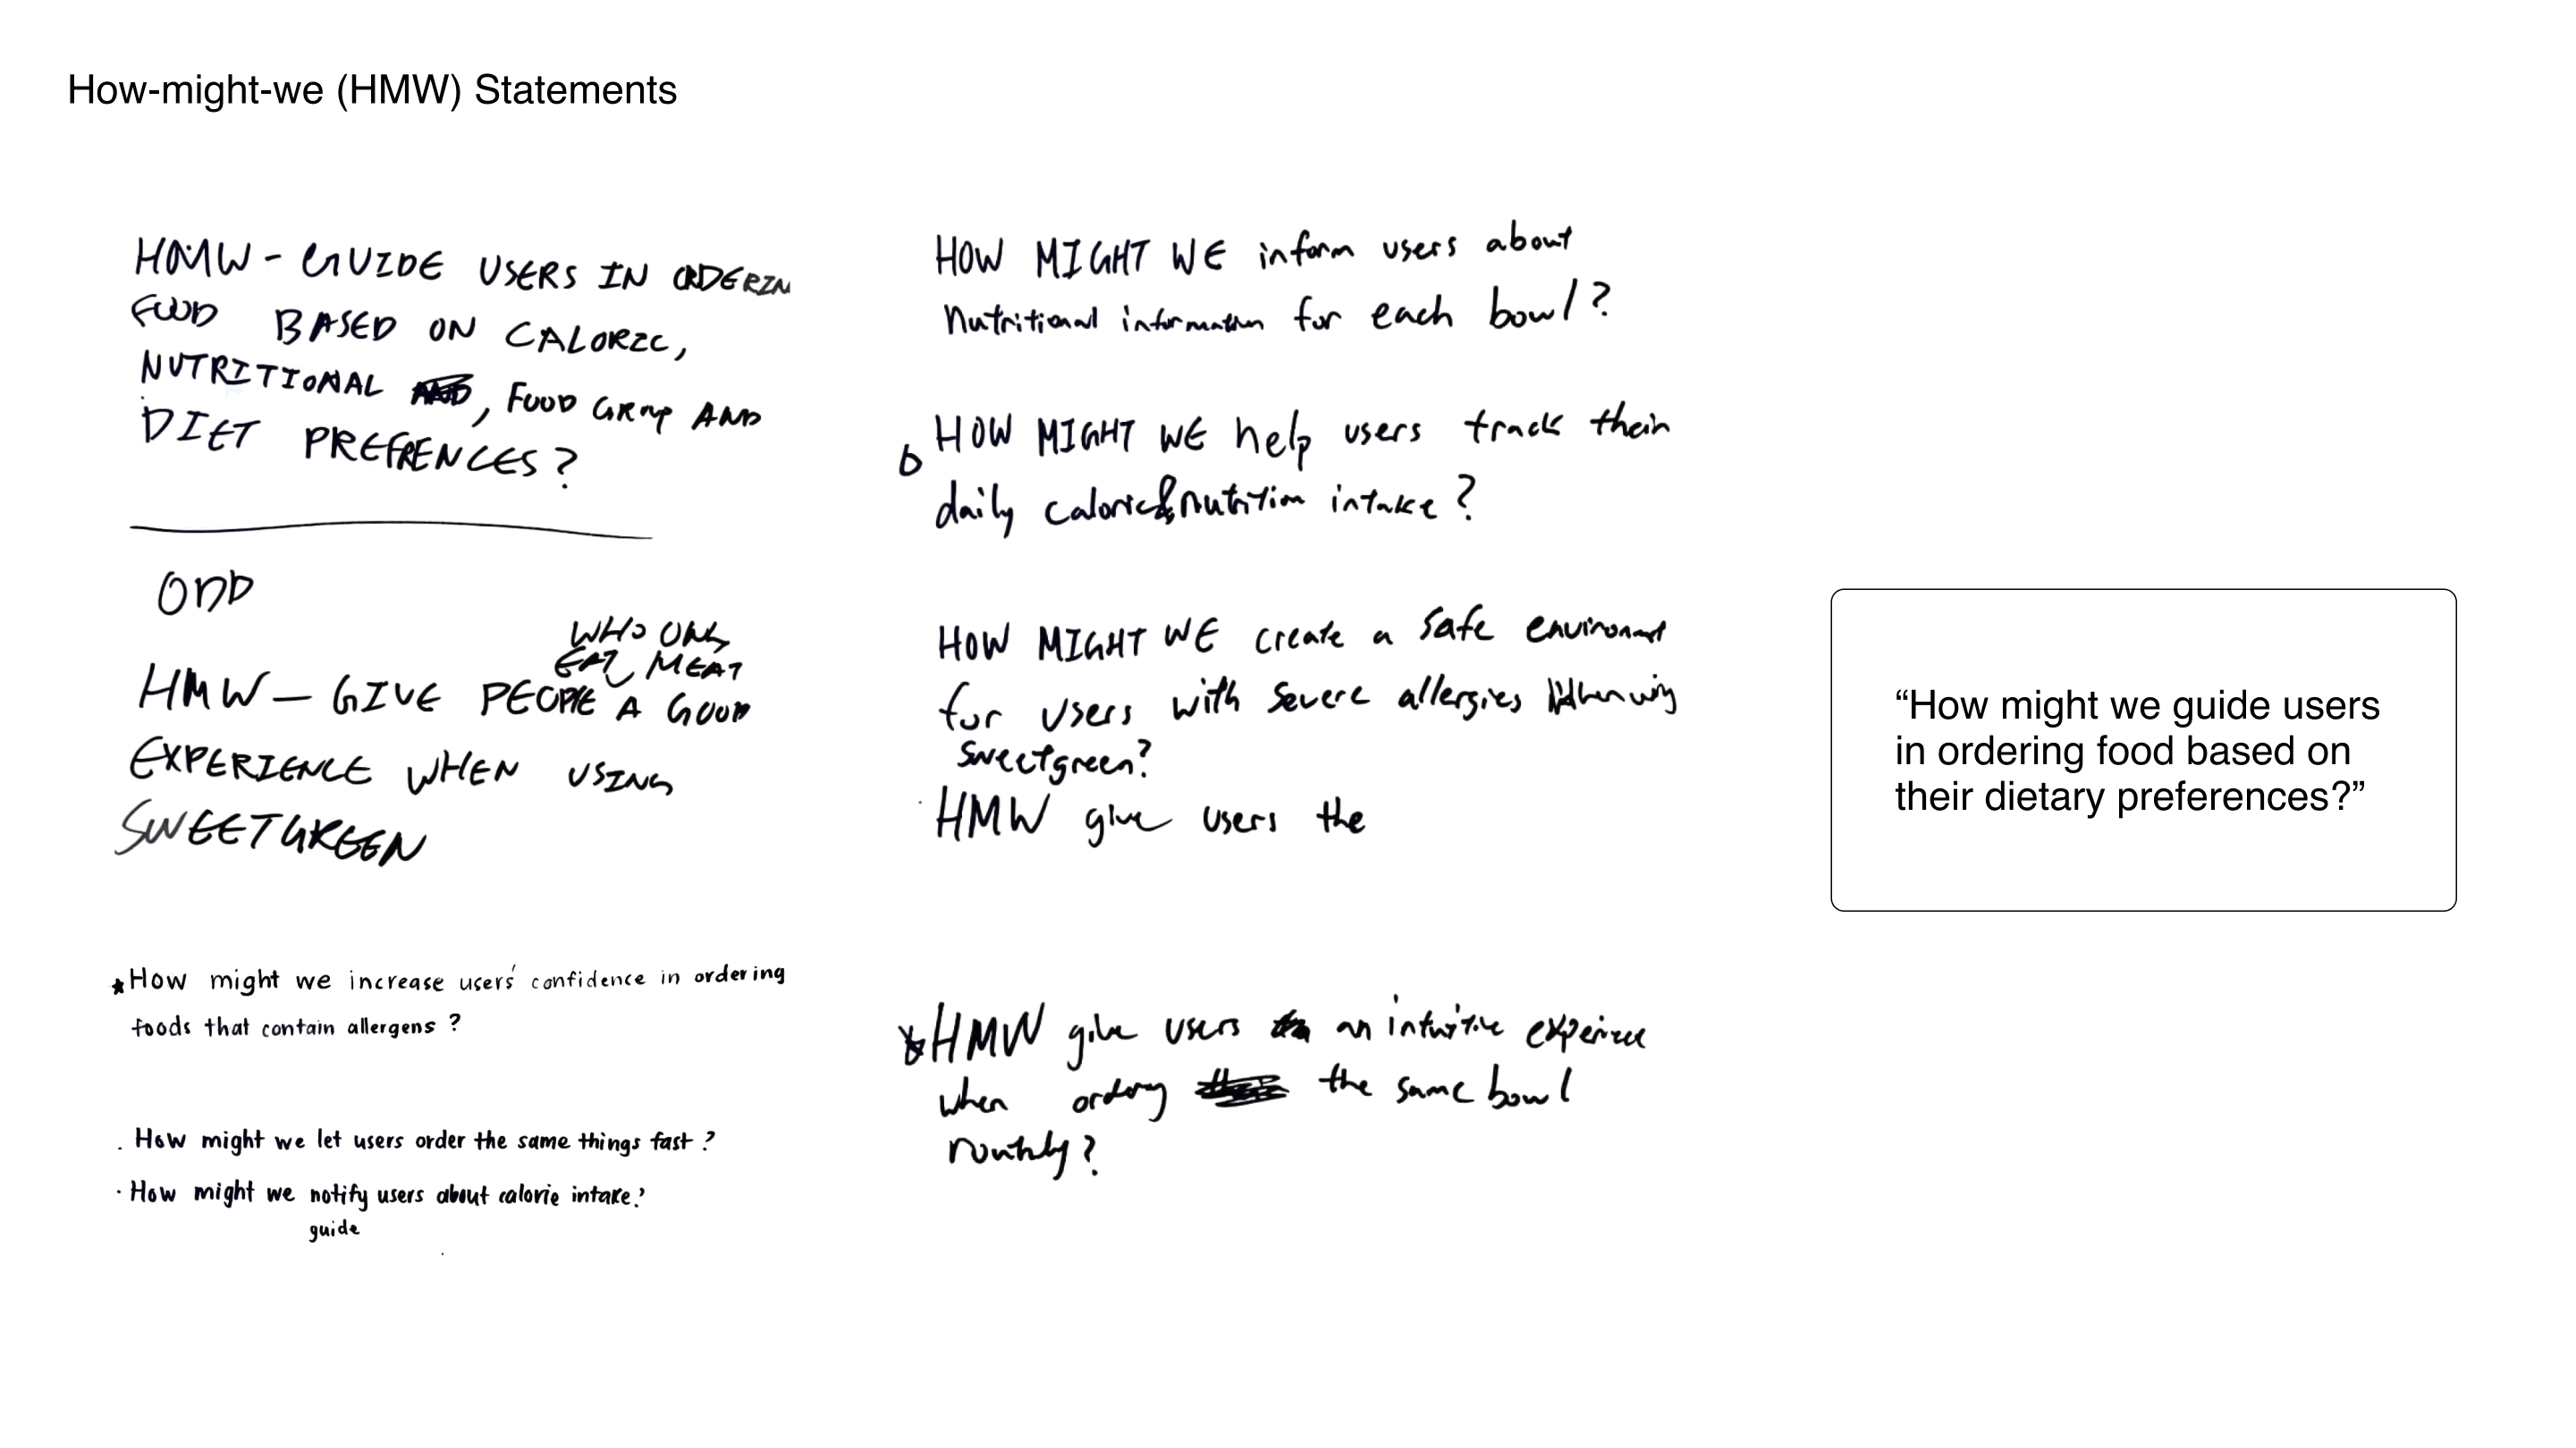 How-might-we (HMW) Statements
HMW - GUIDE USERS IN ORDERIN
FOOD BASED ON CALORIC,
NUTRITIONAL , FOOD GROUP AND
DIET PREFRENCES?
ODD
WHO ONLY
EAT MEAT
HMW - GIVE PEOPLE A GOOD
EXPERIENCE WHEN USING
SWEETGREEN
* How might we increase users' confidence in ordering
foods that contain allergens?
. How might we let users order the same things fast?
· How might we notify users about calorie intake?
guide
HOW MIGHT WE inform users about
Nutritional information for each bowl?
HOW MIGHT WE help users track their
daily caloric & nutrition intake?
HOW MIGHT WE create a safe environment
for users with severe allergies when using
sweetgreen?
HMW give users the
* HMW give users an intuitive experience
when ordering the same bowl
routinely?
“How might we guide users
in ordering food based on
their dietary preferences?”